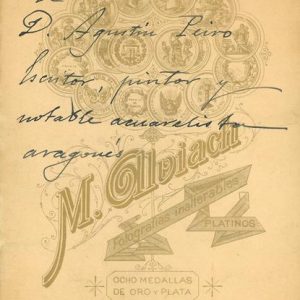 D. Agustín Peiro
Escritor, pintor y
notable acuarelista
aragonés
M. Alviach
Fotografías inalterables
PLATINOS
OCHO MEDALLAS
DE ORO Y PLATA